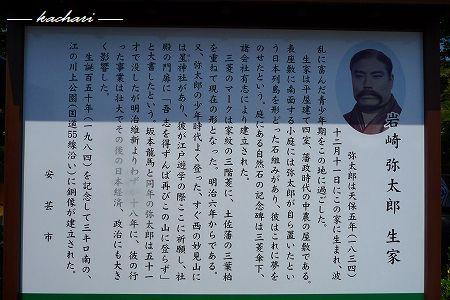 kachari
岩崎 弥太郎 生家
弥太郎は天保五年(一八三四)
十二月十一日にこの家に生まれ、波
乱に富んだ青少年期をこの地に過ごした。
生家は平屋建て四室、藩政時代の中農の屋敷である。
表座敷に南面する小庭には弥太郎が自ら置いたとい
う日本列島を形どった石組みがあり、彼はこれに夢を
のせたという。庭にある自然石の記念碑は三菱傘下、
諸会社有志により建立された。
三菱のマークは家紋の三階菱に、土佐藩の三葉柏
を重ねて現在の形となった。明治六年からである。
又、弥太郎の少年時代よく登った、すぐ西の妙見山に
は星神社があり、彼が江戸遊学の際ここに祈願し、社
殿の門扉に「吾れ志を得ずんば再びこの山に登らず」
と大書したという。坂本龍馬と同年の弥太郎は五十一
才で没したが明治維新よりわずか十八年に、彼の行
った事業は壮大でその後の日本経済、政治にも大き
く影響した。
生誕百五十年(一九八四)を記念して三キロ南の、
江の川上公園(国道55線沿い)に銅像が建立された。
安芸市